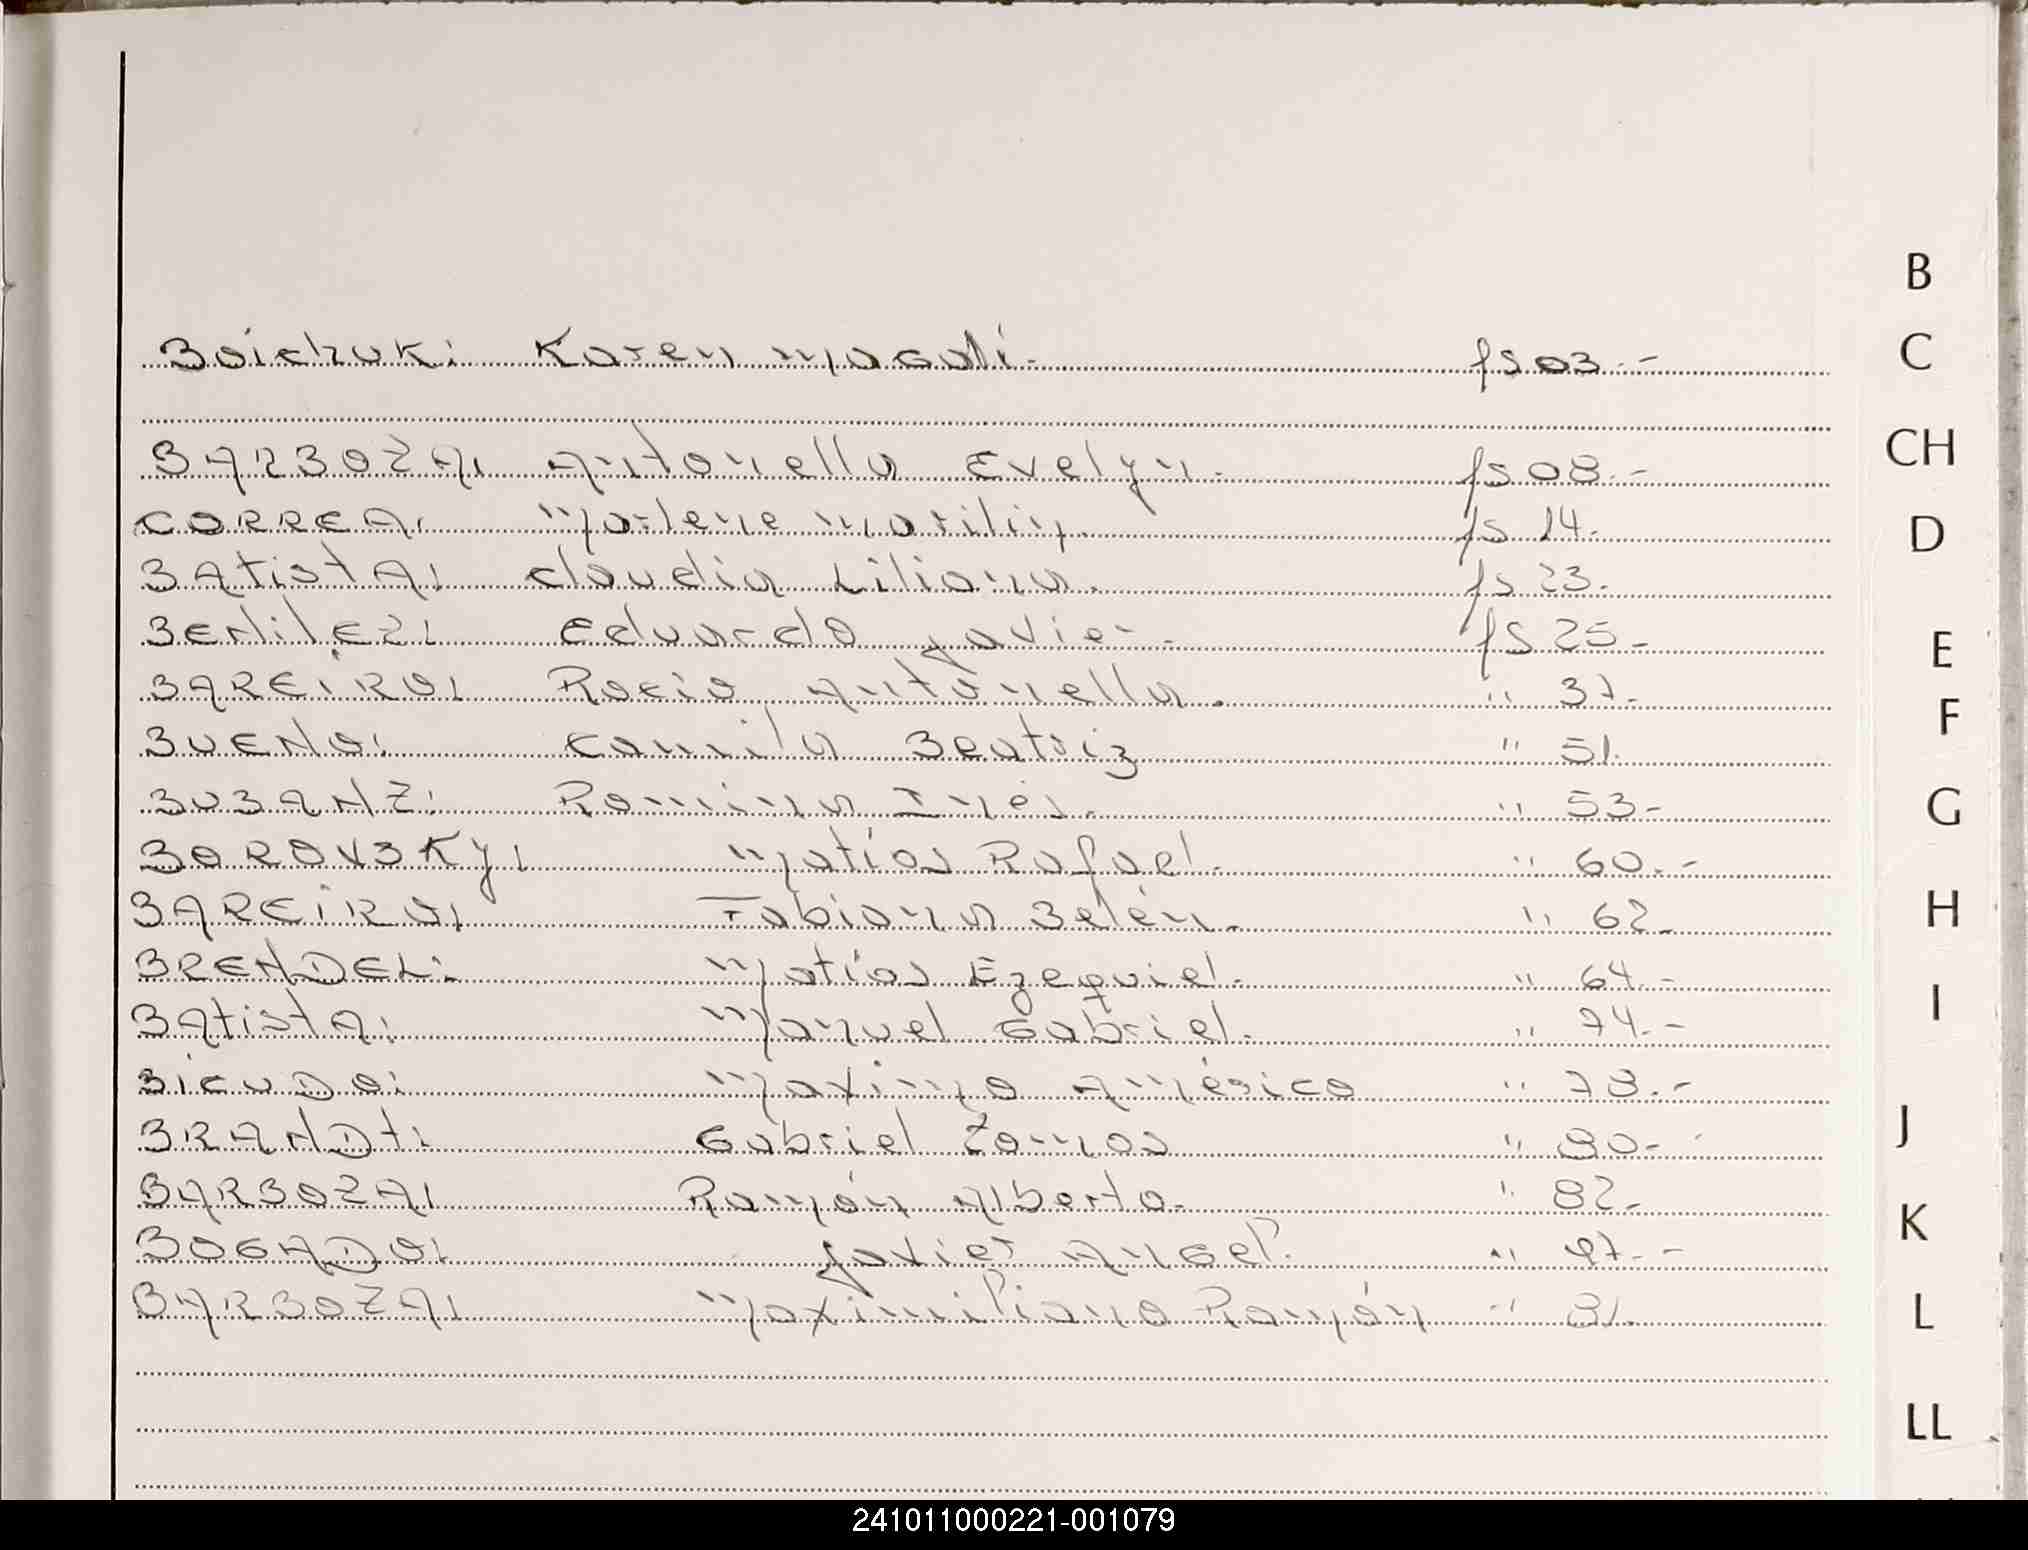 B
Boichuk: Karen Magali.- fs 03.-
C
BARBOZA: Antonella Evelyn.- fs 08.-
CH
CORREA: Marlene Marilin. fs 14.-
D
BATistA: Claudia Liliana. fs 23.
Eduardo Javier.- fs 25-
E
BAREiRO: Rocio Antonella. " 37.-
F
BUENO: Camila Beatriz " 51.
BUBANZ: Romina Inés. " 53-
G
BOROVSKY: Matías Rafael. " 60.-
BAREiRO: Fabiana Belén. " 62-
H
BRENDEL: Matías Ezequiel. " 64.-
I
BAtistA: Manuel Gabriel. " 74.-
BiCUDO: Maximo Américo " 78.-
J
BRANDt: Gabriel Tomas " 80-
BARBOZA: Ramón Alberto. " 82-
K
BOGADO: Javier Angel. " 97.-
BARBOZA: Maximiliano Ramón " 81.
L
LL
241011000221-001079